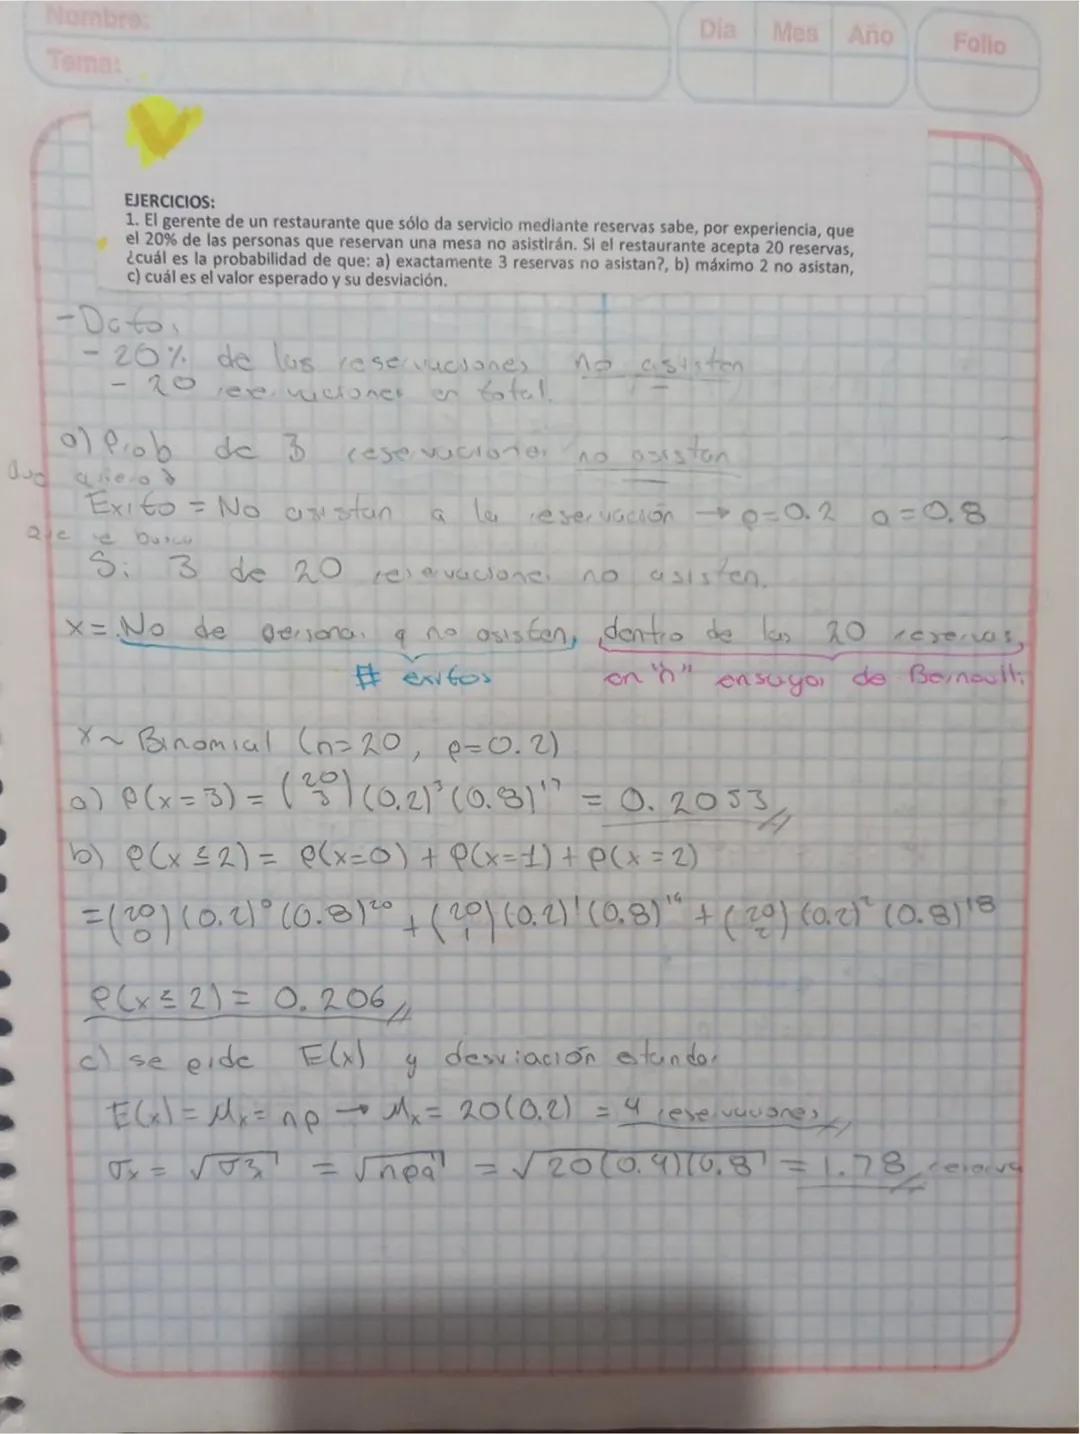 Nombre:
Tema:
Día Mes Año Folio
EJERCICIOS:
1. El gerente de un restaurante que sólo da servicio mediante reservas sabe, por experiencia, que
el 20% de las personas que reservan una mesa no asistirán. Si el restaurante acepta 20 reservas,
¿cuál es la probabilidad de que: a) exactamente 3 reservas no asistan?, b) máximo 2 no asistan,
c) cuál es el valor esperado y su desviación.
- Datos
- 20% de las reservaciones no asisten
- 20 reservaciones en total.
a) Prob de 3 reservaciones no asistan
Éxito = No asistan a la reservación → p=0.2 q=0.8
que se busca
Si 3 de 20 reservaciones no asisten.
x = No de personas q no asisten, dentro de las 20 reservas,
# exitos en "n" ensayos de Bernoulli
x ~ Binomial (n=20, p=0.2)
a) P(x=3) = (20 3) (0.2)³ (0.8)¹⁷ = 0.2053
b) P(x ≤ 2) = P(x=0) + P(x=1) + P(x=2)
= (20 0) (0.2)⁰ (0.8)²⁰ + (20 1) (0.2)¹ (0.8)¹⁹ + (20 2) (0.2)² (0.8)¹⁸
P(x ≤ 2) = 0.206
c) se pide E(x) y desviación estandar
E(x) = μx = np → μx = 20(0.2) = 4 reservaciones
σx = √ = √npq = √20(0.4)(0.8 = 1.78 reserva